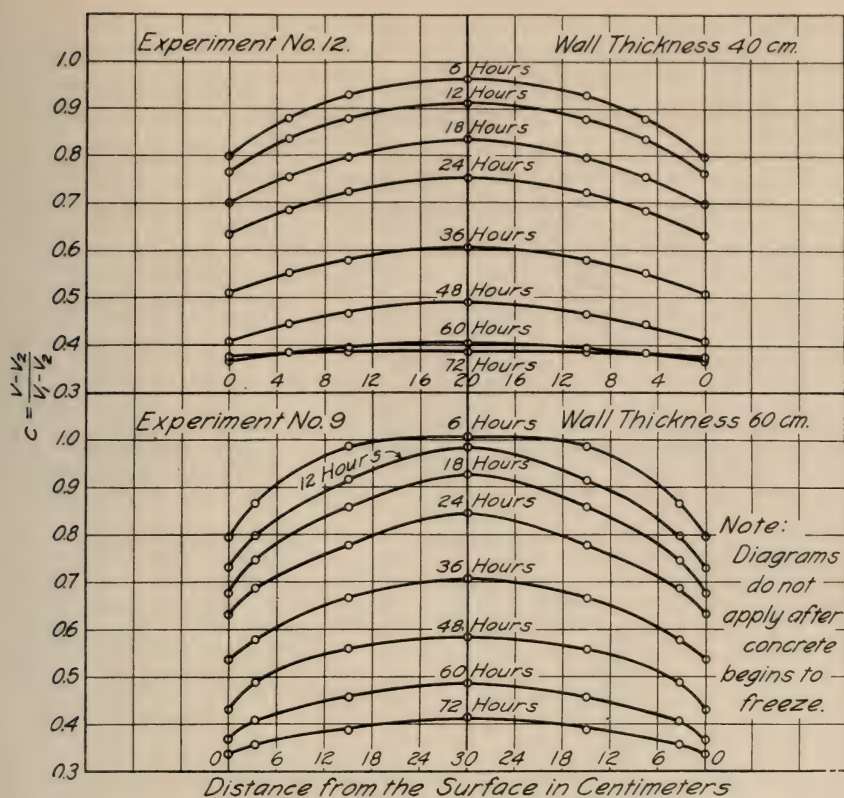 Experiment No. 12. Wall Thickness 40 cm.
1.0
0.9
0.8
0.7
0.6
0.5
0.4
0.3
6 Hours
12 Hours
18 Hours
24 Hours
36 Hours
48 Hours
60 Hours
72 Hours
0 4 8 12 16 20 16 12 8 4 0
C = V-V2 / V1-V2
Experiment No. 9 Wall Thickness 60 cm.
1.0
0.9
0.8
0.7
0.6
0.5
0.4
0.3
6 Hours
12 Hours
18 Hours
24 Hours
36 Hours
48 Hours
60 Hours
72 Hours
Note:
Diagrams
do not
apply after
concrete
begins to
freeze.
0 6 12 18 24 30 24 18 12 6 0
Distance from the Surface in Centimeters